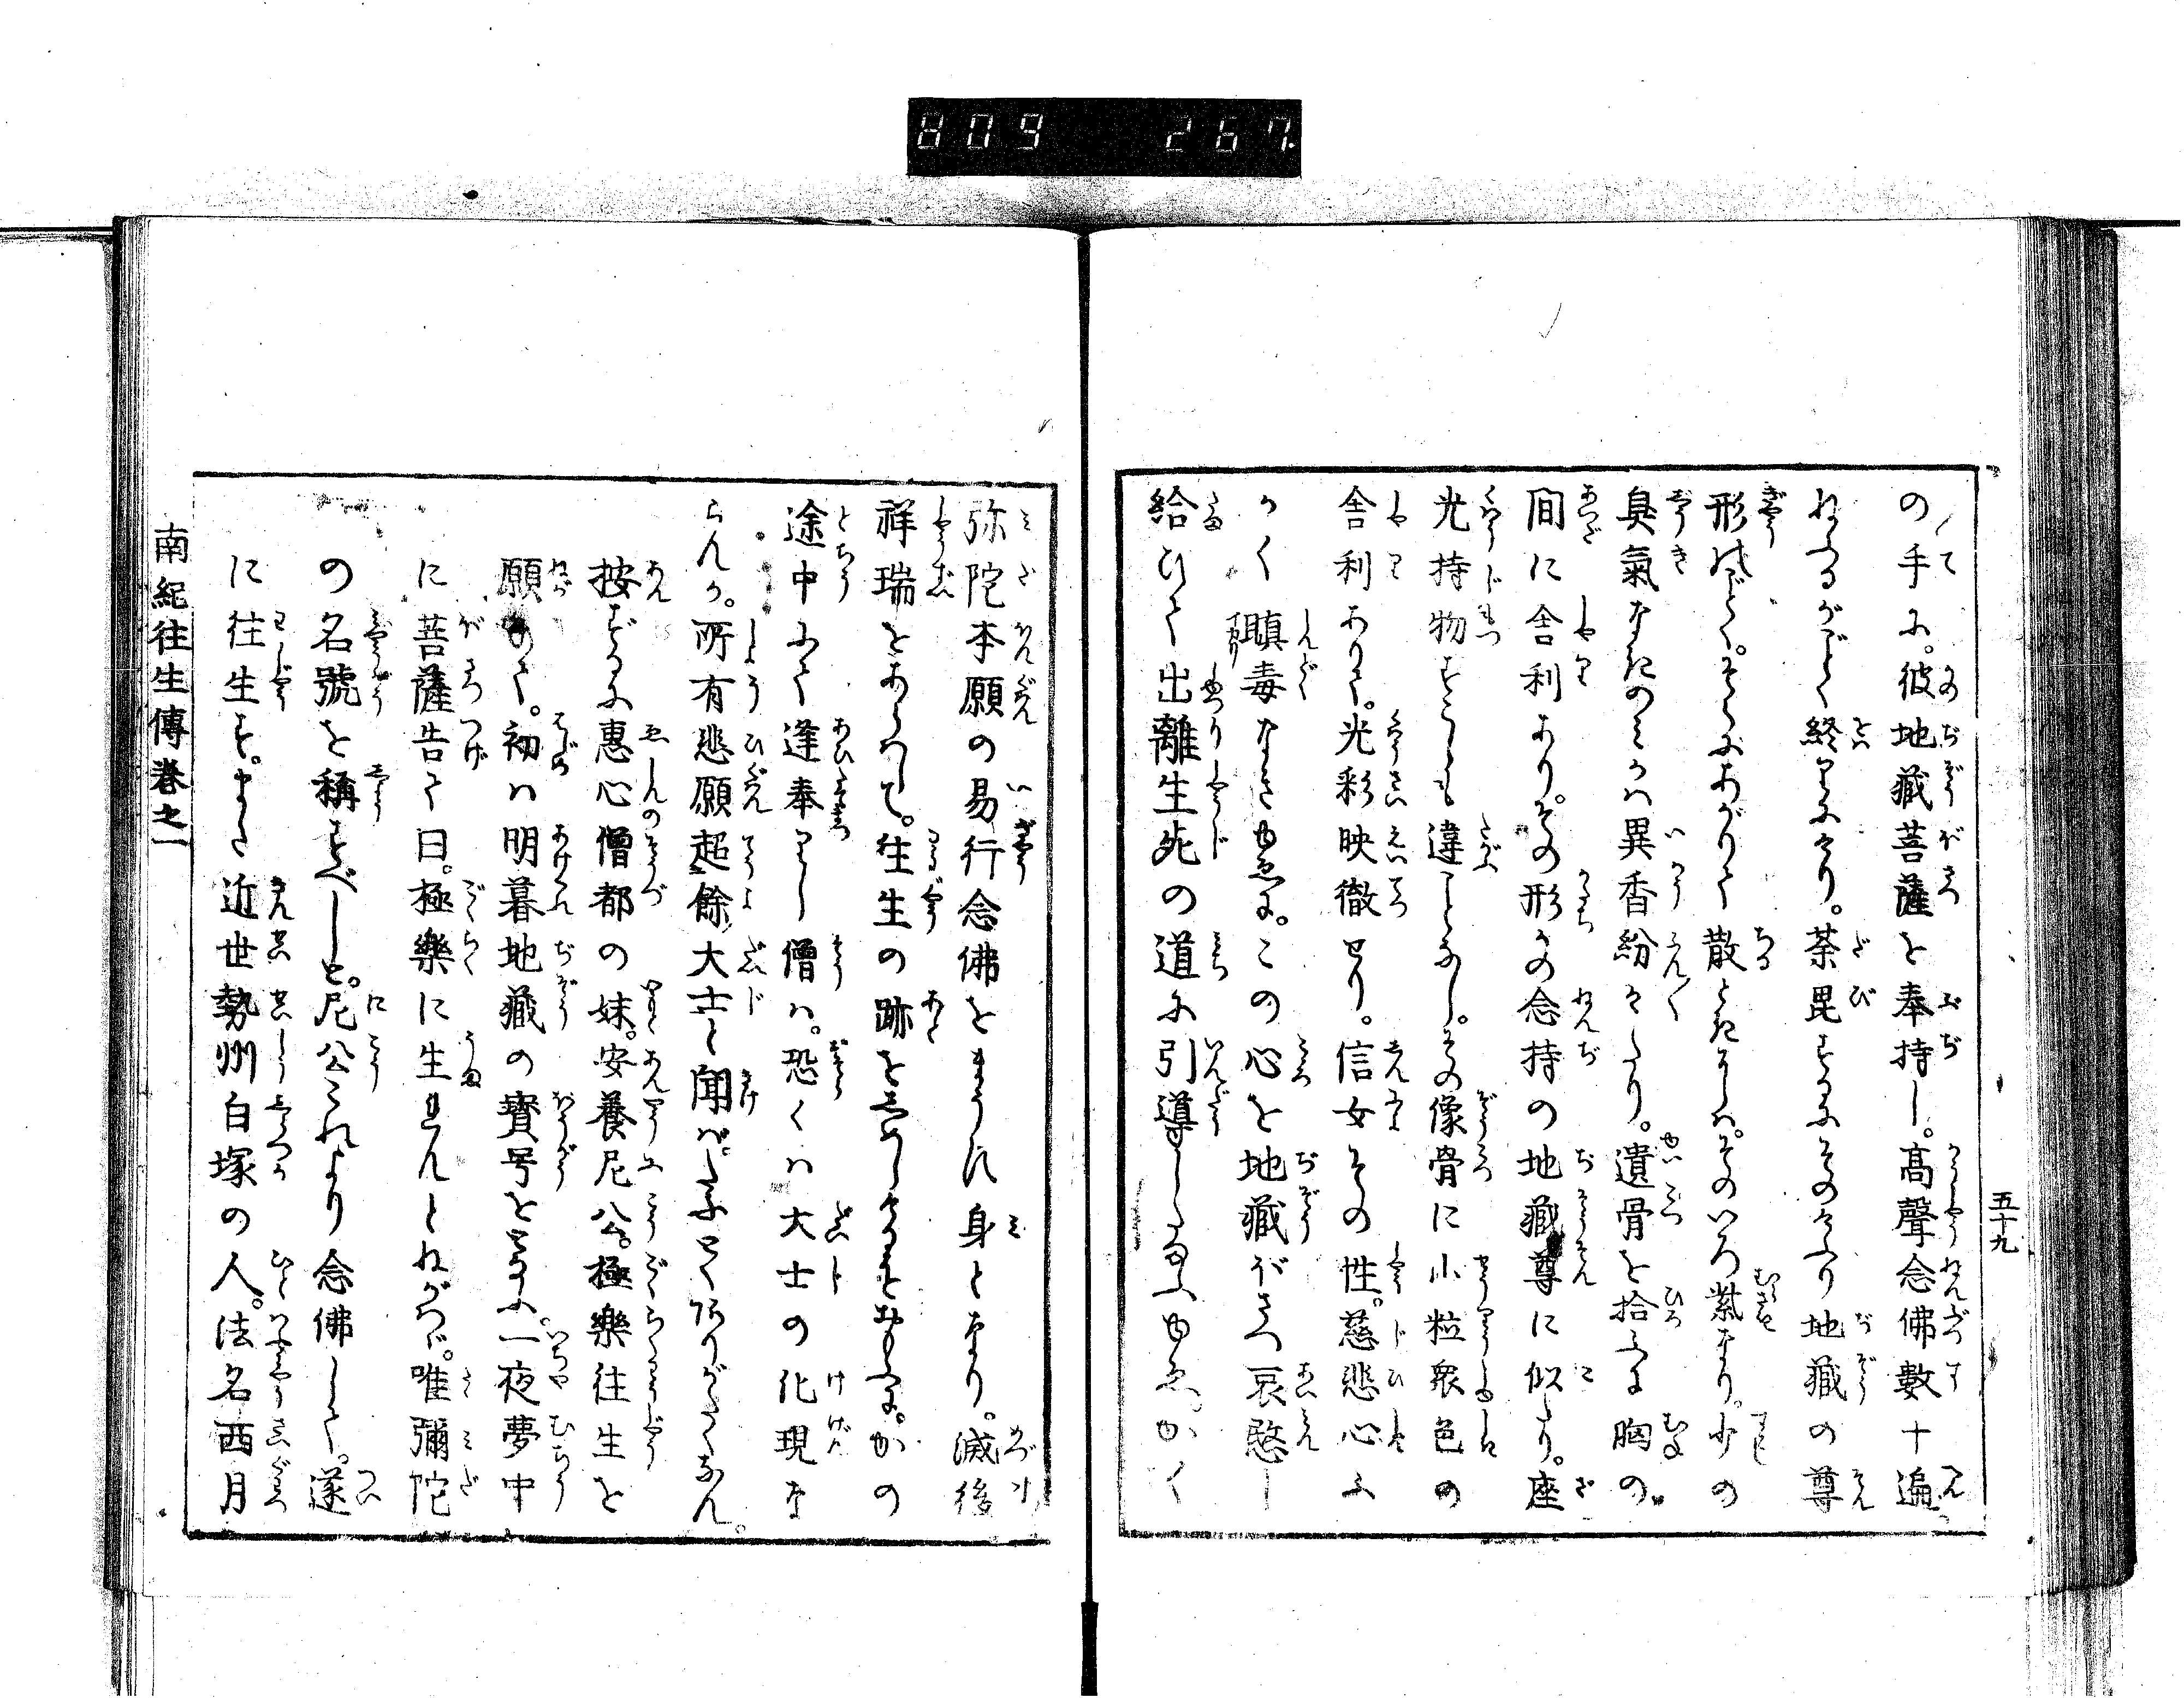 809 267.
五十九
の手に。彼地藏菩薩を奉持し。高聲念佛數十遍
ねふるがごとく終りにけり。荼毘するにそのけふり地藏の尊
形のごとく。そらにあがりて散ときは。そのいろ紫なり。少の
臭氣なきのミかハ異香紛々たり。遺骨を拾ふに胸の
間に舎利あり。その形かの念持の地藏尊に似たり。座
光持物すこしも違ことなし。その像骨に小粒衆色の
舎利ありて。光彩映徹せり。信女その性。慈悲心ふ
かく瞋毒なきゆゑに。この心を地藏ぼさつ哀愍し
給ひて出離生死の道に引導ましたまふゆゑ。かく
弥陀本願の易行念佛をまうす身となり。滅後
祥瑞をあらハして。往生の跡をしめしけるをおもふに。かの
途中にて逢奉りし僧ハ。恐くハ大士の化現な
らんか。所有悲願超餘大士と聞ば。たふとくありがたくなん。
按ずるに惠心僧都の妹。安養尼公。極樂往生を
願ひて。初ハ明暮地藏の寳号をとなふ。一夜夢中
に菩薩告て曰。極樂に生れんとねがハゞ。唯彌陀
の名號を稱すべしと。尼公これより念佛して。遂
に往生す。また近世勢州白塚の人。法名西月
南紀往生傳卷之一